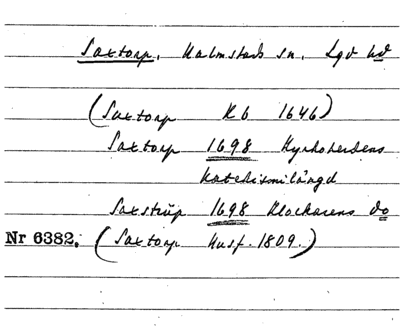 Saxtorp, Halmstads sn, Lgd hd
(Saxtorp Kb 1646)
Saxtorp 1698 Kyrkoherdens
katekismilängd
Saxstrup 1698 Klockarens do
Nr 6382. (Saxtorp Husf. 1809.)